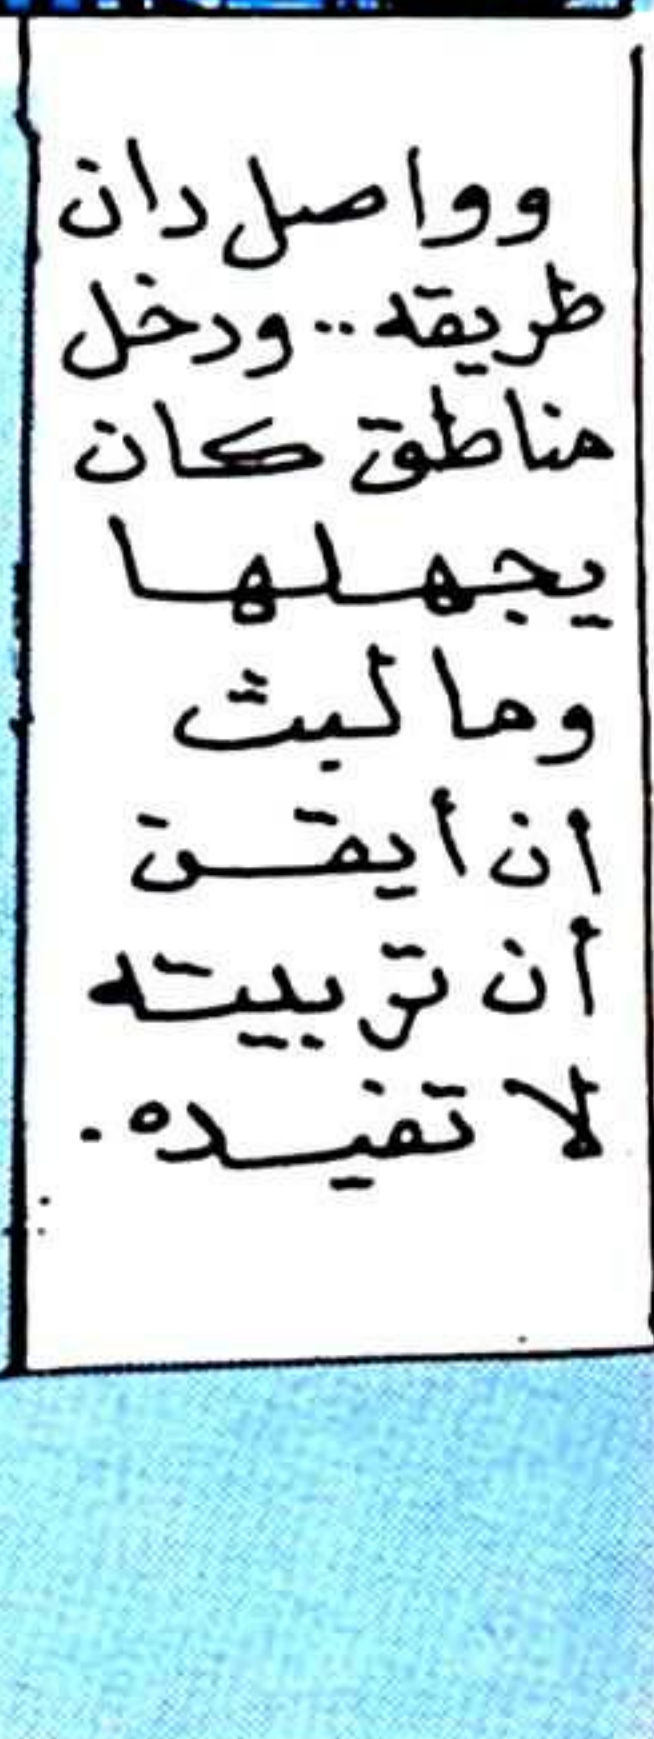 وواصل دان
طريقه .. ودخل
مناطق كان
يجهلها
وما لبث
ان أيقن
أن تربيته
لا تفيده .